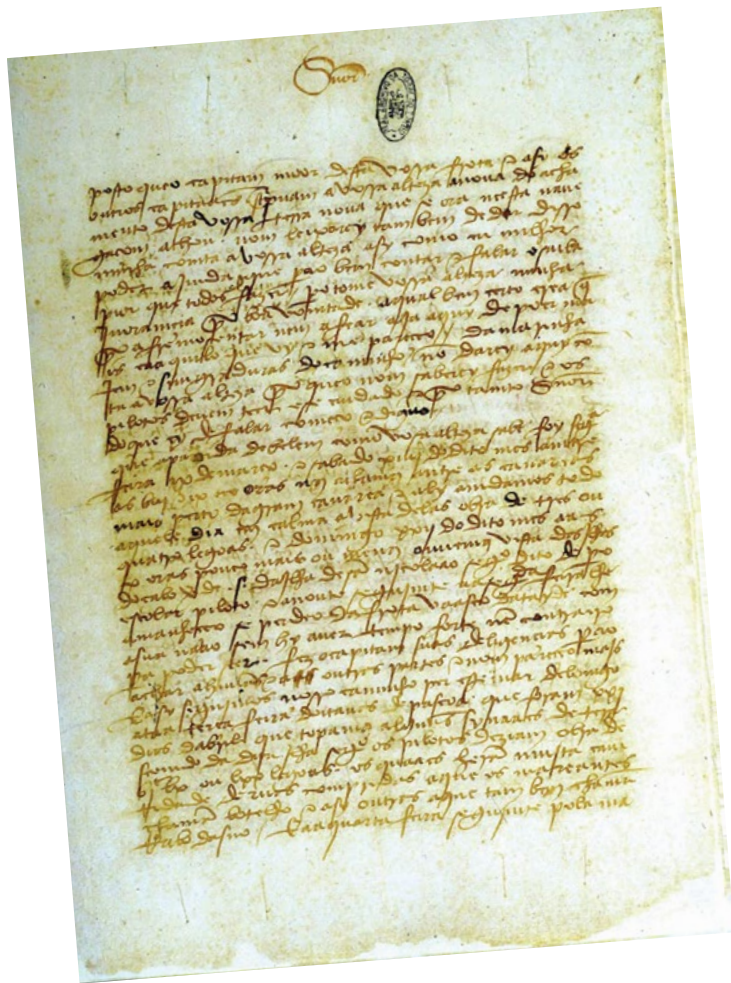 Snor
posto queo capitam moor desta vossa frota e asy os
outros capitaães screpuam a vossa alteza anoua do acha
mento desta vossa terra noua que se ora neesta naue
gaçam achou. nom leixarey tambem de dar disso
minha comta a vossa alteza asy como eu milhor
poder ajmda que pera o bem contar e falar o saiba
pior que todos fazer. pero tome vossa alteza minha
jnoramçia por boa vomtade. aqual bem çerto crea q̃
por afremosentar nem afear aja aquy de poer ma
is caaquilo que vy e me pareçeo / da marinha
jem e simgraduras do caminho nõ darey aquy cõ
ta a vossa alteza por queo nom saberey fazer e os
pilotos deuem teer ese cuidado e por tanto Snor
do que ey de falar começo e diguo
que apartida de belem como vosa alteza sabe foy segª
feira ix de março. e sabado xiiij do dito mes amtre
as biij e ix oras nos achamos amtre as canareas
mais perto da gram canarea e aly amdamos todo
aquele dia em calma avista delas obra de tres ou
quatro legoas. e domingo xxij do dito mes aas
x oras pouco mais ou menos ouuemos vista das jlhas
do cabo verde .s. da jlha de sã njcolaao segº dito de pº
escolar piloto. e anoute segujmte aa segª feira lhe
amanheceo se perdeo da frota vaasco datayde com
asua naao sem hy auer tempo forte nẽ contrairo
pera poder seer. fez ocapitam suas deligençias pera o
achar ahuũas e aoutras partes e nom pareçeo majs
E asy segujmos nosso caminho per este mar delomgo
ataa terça feira doitauas de pascoa que foram xxj
dias dabril que topamos alguũs synaaes de tera
seendo da dita jlha segº os pilotos deziam obra de
bjᶜlx ou lxx legoas. os quaaes heram mujta cam
tidade deruas compridas aque os mareantes
chamã botelho e asy outras aque tambem chamã
rrabo dasno / E aaquarta feira segujmte pola ma